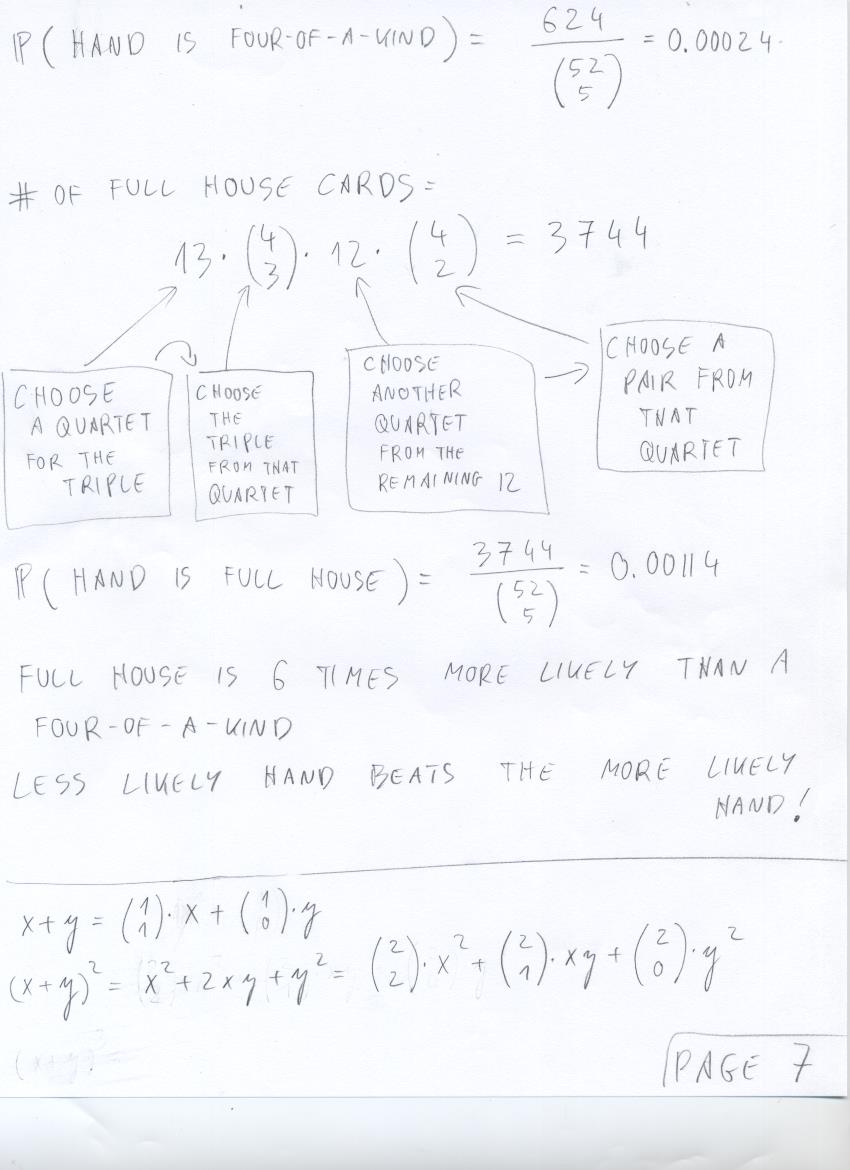 P( HAND IS FOUR-OF-A-KIND ) = 624 / (52 5) = 0.00024.
# OF FULL HOUSE CARDS =
13 · (4 3) · 12 · (4 2) = 3744
CHOOSE
A QUARTET
FOR THE
TRIPLE
CHOOSE
THE
TRIPLE
FROM THAT
QUARTET
CHOOSE
ANOTHER
QUARTET
FROM THE
REMAINING 12
CHOOSE A
PAIR FROM
THAT
QUARTET
P( HAND IS FULL HOUSE ) = 3744 / (52 5) = 0.00114
FULL HOUSE IS 6 TIMES MORE LIKELY THAN A
FOUR-OF-A-KIND
LESS LIKELY HAND BEATS THE MORE LIKELY
HAND!
x+y = (1 1)·x + (1 0)·y
(x+y)² = x²+2xy+y² = (2 2)·x² + (2 1)·xy + (2 0)·y²
PAGE 7